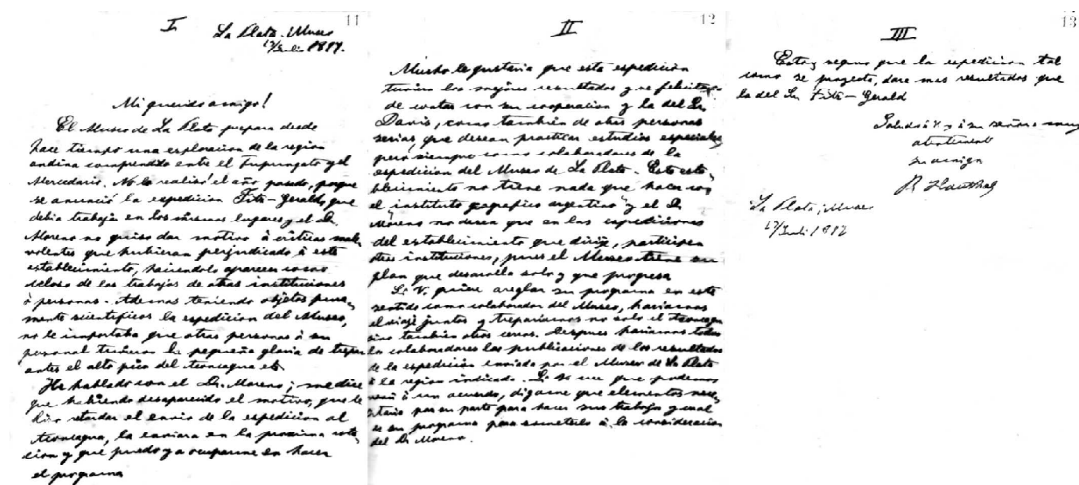 I
11
La Plata. Museo
1897.
Mi querido amigo!
El Museo de La Plata prepara desde
hace tiempo una exploracion de la region
andina comprendido entre el Tupungato y el
Mercedario. No lo realizó el año pasado, porque
se anunció la espedicion Fitz-Gerald, que
debia trabajar en los mismos lugares y el Dr.
Moreno no quiso dar motivo á criticas male-
volentes que hubieran perjudicado á este
establecimiento, haciendolo aparecer como
deloso de los trabajos de otras instituciones
ó personas. Ademas teniendo objetos pura-
mente scientificos la espedicion del Museo,
no le importaba que otras personas ó su
personal tuvieran la pequeña gloria de trepar
antes el alto pico del Aconcagua etc.
He hablado con el Dr. Moreno; me dice
que habiendo desaparecido el motivo, que le
hizo retardar el envio de la espedicion al
Aconcagua, la enviara en la proxima esta-
cion y que puedo ya ocuparme en hacer
el programa
II
12
Mucho le gustaria que esta espedicion
tuviera los mejores resultados y se felicita
de contar con su cooperacion y la del Dr.
Davis, como también de otras personas
serias, que desean practicar estudios especiales
pero siempre como colaboradores de la
espedicion del Museo de La Plata. Este esta-
blecimiento no tiene nada que hacer con
el instituto geografico argentino y el Dr.
Moreno no desea que en las espediciones
del establecimiento que dirije, participen
otras instituciones, pues el Museo tiene su
plan que desarrolla solo y que progresa
Si V. quiere arreglar su programa en este
sentido como colaborador del Museo, hariamos
el viaje juntos y treparíamos no solo el Aconcagua
sino tambien otros cerros. Despues hariamos todos
los colaboradores las publicaciones de los resultados
de la espedicion enviada por el Museo de La Plata
á la region indicada. Si se cree que podemos
venir á un acuerdo, digame que elementos nece-
sitaria por su parte para hacer sus trabajos y cual
es su programa para someterlo á la consideracion
del Dr. Moreno.
III
13
Estoy seguro que la espedicion tal
como se proyecta, dara mas resultados que
la del Sr. Fitz-Gerald
Saluda á V. y á su señora muy
atentamente
su amigo
R Hauthal
La Plata, Museo